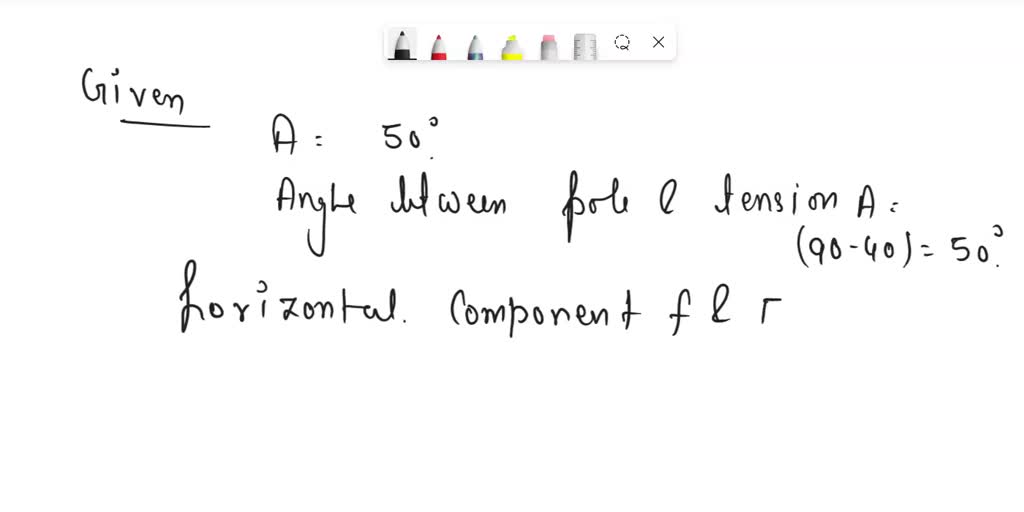 Given
A = 50°.
Angle between pole & tension A =
(90-40) = 50°.
horizontal. Component f & T